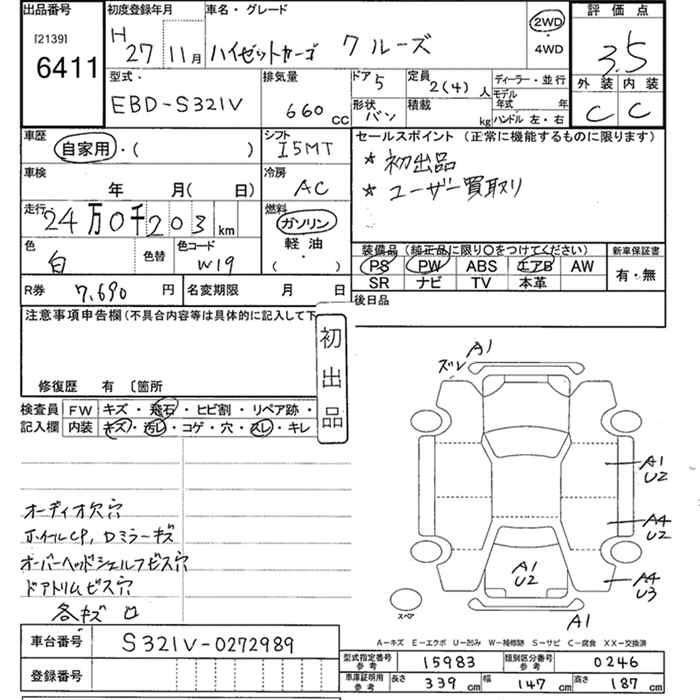 出品番号 初度登録年月 車名・グレード 2WD 4WD 評価点
[2139] 6411 H 27 11月 ハイゼットカーゴ クルーズ 3.5
外装 内装
C C
型式・ 排気量 ドア・ 定員 ディーラー・並行
EBD-S321V 660cc 5 2(4)人 モデル年式 年
形状 バン 積載 kg ハンドル 左・右
車歴 シフト セールスポイント(正常に機能するものに限ります)
自家用・( ) I5MT ★初出品
車検 冷房 ★ユーザー買取り
年 月( 日) AC
走行 燃料
24万0千203km ガソリン
軽油
・
( )
色 色替 色コード 装備品(純正品に限り○をつけてください) 新車保証書
白 W19 PS PW ABS エアB AW 有・無
SR ナビ TV 本革
R券 7,690円 名変期限 月 日 後日品
注意事項申告欄(不具合内容等は具体的に記入して下
初出品
修復歴 有 〔箇所
検査員 FW キズ・飛石・ヒビ割・リペア跡・
記入欄 内装 キズ・汚レ・コゲ・穴・スレ・キレ
オーディオ欠穴
ホイルCP,Dミラーキズ
オーバーヘッドシェルフビス穴
ドアトリムビス穴
各キズ
ズレ A1
A1
U2
A4
U2
A1
U2
A4
U3
スペア
A1
A-キズ E-エクボ U-凹み W-補修跡 S-サビ C-腐食 XX-交換済
車台番号 S321V-0272989
型式指定番号 参考 15983 類別区分番号 参考 0246
登録番号
車庫証明用 参考 長さ 339cm 幅 147cm 高さ 187cm